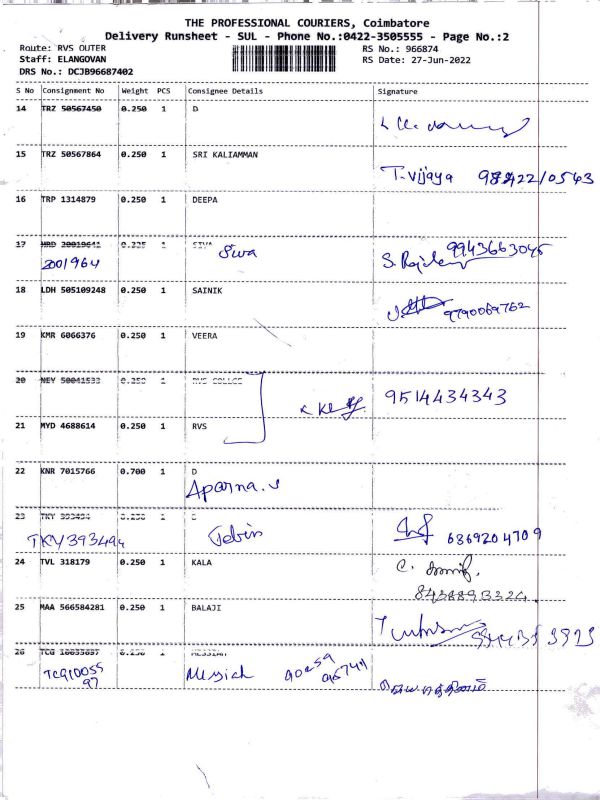 THE PROFESSIONAL COURIERS, Coimbatore
Delivery Runsheet - SUL - Phone No.:0422-3505555 - Page No.:2
Route: RVS OUTER RS No.: 966874
Staff: ELANGOVAN RS Date: 27-Jun-2022
DRS No.: DCJB96687402
S No Consignment No Weight PCS Consignee Details Signature
14 TRZ 50567450 0.250 1 D
15 TRZ 50567864 0.250 1 SRI KALIAMMAN
T.vijaya
16 TRP 1314879 0.250 1 DEEPA
17 1 Siva 9943663045
2001964
18 LDH 505109248 0.250 1 SAINIK
9790069762
19 KMR 6066376 0.250 1 VEERA
20 NEY 50041533 0.250 1 RVS COLLGE 9514434343
21 MYD 4688614 0.250 1 RVS
22 KNR 7015766 0.700 1 D
Aparna.s
23 TKY 393494 0.250 1
TKY393494 Jebin 6869204709
24 TVL 318179 0.250 1 KALA
25 MAA 566584281 0.250 1 BALAJI
26 1 MESSIAH
Messiah